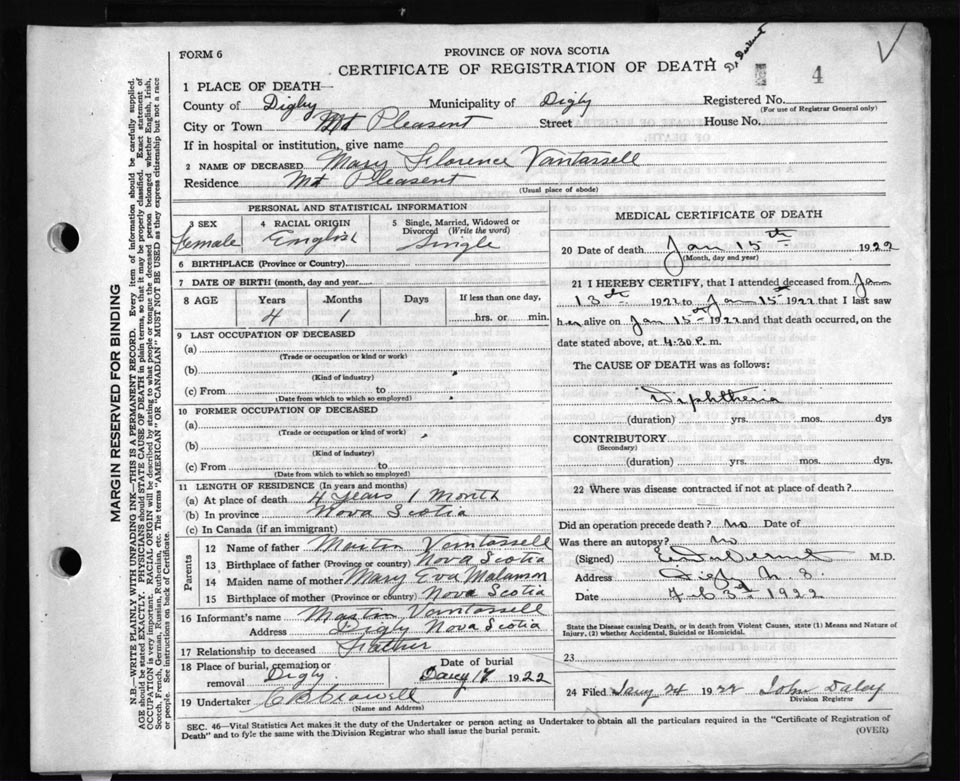 FORM 6
PROVINCE OF NOVA SCOTIA
CERTIFICATE OF REGISTRATION OF DEATH
Dr
4
1 PLACE OF DEATH—
County of Digby Municipality of Digby Registered No.
(For use of Registrar General only)
City or Town Mt Pleasent Street House No.
If in hospital or institution, give name
2 NAME OF DECEASED Mary Florence Vantassell
Residence Mt Pleasent
(Usual place of abode)
PERSONAL AND STATISTICAL INFORMATION
3 SEX 4 RACIAL ORIGIN 5 Single, Married, Widowed or Divorced (Write the word)
Female English Single
6 BIRTHPLACE (Province or Country)
7 DATE OF BIRTH (month, day and year)
8 AGE Years Months Days If less than one day,
4 1 hrs. or min.
9 LAST OCCUPATION OF DECEASED
(a)
(Trade or occupation or kind or work)
(b)
(Kind of industry)
(c) From to
(Date from which to which so employed)
10 FORMER OCCUPATION OF DECEASED
(a)
(Trade or occupation or kind of work)
(b)
(Kind of industry)
(c) From to
(Date from which to which so employed)
11 LENGTH OF RESIDENCE (In years and months)
(a) At place of death 4 years 1 month
(b) In province Nova Scotia
(c) In Canada (if an immigrant)
Parents
12 Name of father Martin Vantassell
13 Birthplace of father (Province or country) Nova Scotia
14 Maiden name of mother Mary Eva Malanson
15 Birthplace of mother (Province or country) Nova Scotia
16 Informant's name Martin Vantassell
Address Digby Nova Scotia
17 Relationship to deceased Father
18 Place of burial, cremation or removal Digby Date of burial Jany 17 1922
19 Undertaker
(Name and Address)
MEDICAL CERTIFICATE OF DEATH
20 Date of death Jan 15th 1922
(Month, day and year)
21 I HEREBY CERTIFY, that I attended deceased from Jan
13th 1922 to Jan 15th 1922 that I last saw
her alive on Jan 15th 1922 and that death occurred, on the
date stated above, at 4:30 P. m.
The CAUSE OF DEATH was as follows:
Diphtheria
(duration) yrs. mos. dys
CONTRIBUTORY
(Secondary)
(duration) yrs. mos. dys.
22 Where was disease contracted if not at place of death?
Did an operation precede death? no Date of
Was there an autopsy? no
(Signed) M.D.
Address Digby N. S.
Date Feb 3rd 1922
State the Disease causing Death, or in death from Violent Causes, state (1) Means and Nature of
Injury, (2) whether Accidental, Suicidal or Homicidal.
23
24 Filed Jany 24 1922 John Daley
Division Registrar
SEC. 46—Vital Statistics Act makes it the duty of the Undertaker or person acting as Undertaker to obtain all the particulars required in the "Certificate of Registration of
Death" and to fyle the same with the Division Registrar who shall issue the burial permit.
(OVER)
MARGIN RESERVED FOR BINDING
N.B.—WRITE PLAINLY WITH UNFADING INK—THIS IS A PERMANENT RECORD. Every item of information should be carefully supplied.
AGE should be stated EXACTLY. PHYSICIANS should STATE CAUSE OF DEATH in plain terms, so that it may be properly classified. Exact statement of
OCCUPATION is very important. RACIAL ORIGIN will be described by stating to what people or tongue the deceased person belonged whether English, Irish,
Scotch, French, German, Russian, Ruthenian, etc. The terms "AMERICAN" OR "CANADIAN" MUST NOT BE USED as they express citizenship but not a race
or people. See instructions on back of Certificate.